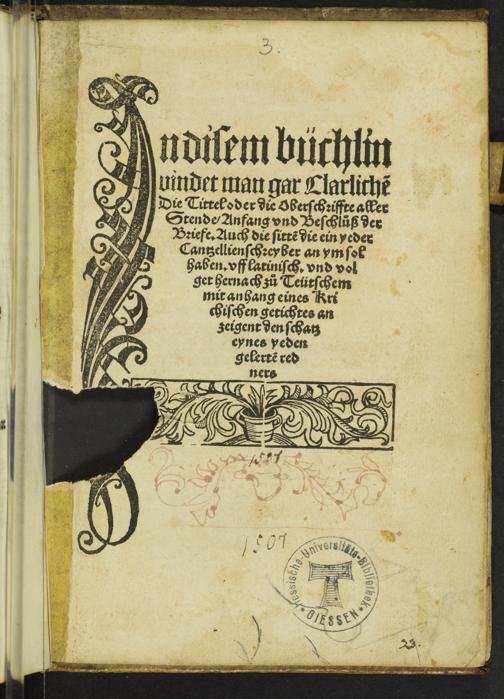 3.
In disem büchlin
vindet man gar Clarlichē
Die Tittel oder die Oberschriffte aller
Stende/ Anfang vnd Beschlüß der
Briefe. Auch die sittē die ein yeder
Cantzellienschreyber an ym sol
haben. vff latinisch. vnd vol
get hernach zů Teütschem
mit anhang eines Kri
chischen getichtes an
zeigent den schatz
eynes yeden
gelertē red
ners
1507
1507
Hessische-Universitäts-Bibliothek
GIESSEN
23.